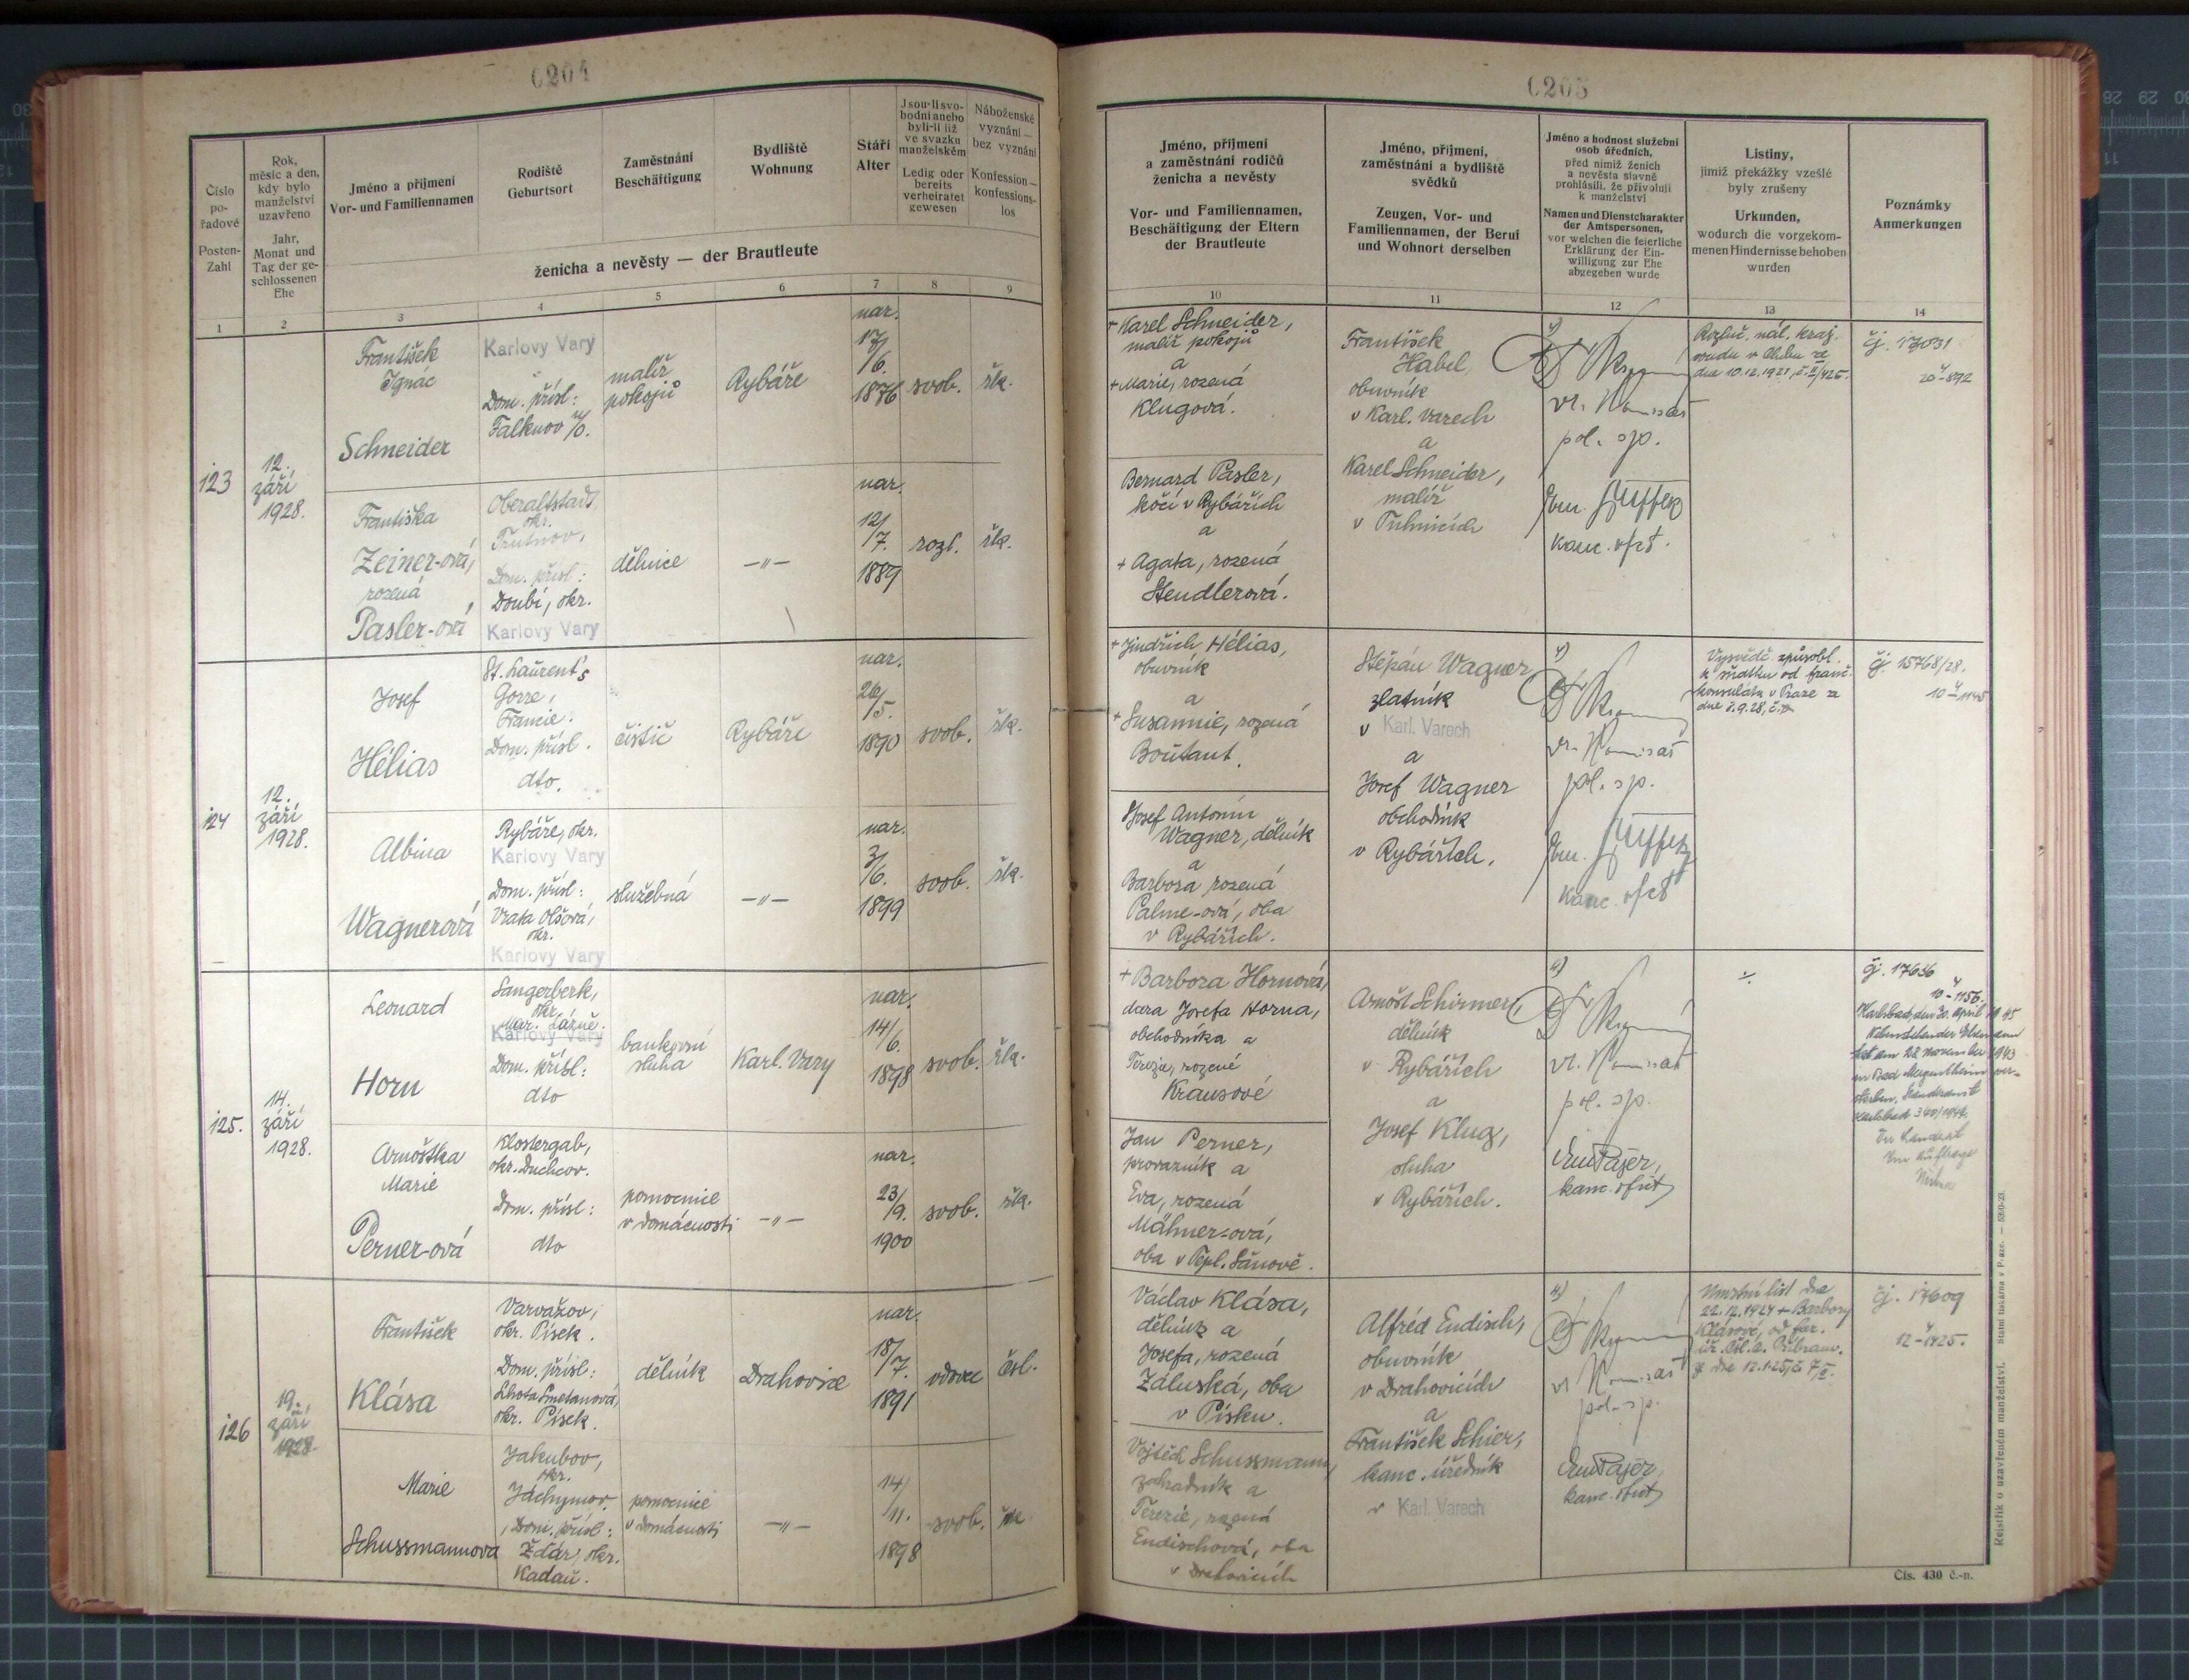 0204
Číslo
po-
řadové
Posten-
Zahl
Rok,
měsíc a den,
kdy bylo
manželství
uzavřeno
Jahr,
Monat und
Tag der ge-
schlossenen
Ehe
Jméno a příjmení
Vor- und Familiennamen
Rodiště
Geburtsort
Zaměstnání
Beschäftigung
Bydliště
Wohnung
Stáří
Alter
Jsou-li svo-
bodni anebo
byli-li již
ve svazku
manželském
Ledig oder
bereits
verheiratet
gewesen
Náboženské
vyznání —
bez vyznání
Konfession —
konfessions-
los
ženicha a nevěsty — der Brautleute
1 2 3 4 5 6 7 8 9
123
12.
září
1928.
František
Ignác
Schneider
Karlovy Vary
Dom. přísl:
Falknov n/O.
malíř
pokojů
Rybáře
nar.
17/
/6.
1876
svob.
řk.
Františka
Zeiner-ová,
rozená
Pasler-ová
Oberaltstadt
okr.
Trutnov,
Dom. přísl:
Doubí, okr.
Karlovy Vary
dělnice
—„—
nar.
12/
/7.
1889
rozl.
řk.
124
12.
září
1928.
Josef
Hélias
St. Laurent's
Gorre,
Francie.
Dom. přísl.
dto.
čistič
Rybáře
nar.
26/
/5.
1890
svob.
řk.
Albina
Wagnerová
Rybáře, okr.
Karlovy Vary
Dom. přísl:
Vrata Olšová,
okr.
Karlovy Vary
služebná
—„—
nar.
3/
/6.
1899
svob.
řk.
125.
14.
září
1928.
Leonard
Horn
Sangerberk,
okr.
Mar. Lázně.
Karlovy Vary
Dom. přísl:
dto
bankovní
sluha
Karl. Vary
nar.
14/
/6.
1898
svob.
řk.
Arnoštka
Marie
Perner-ová
Klostergab,
okr. Duchcov.
Dom. přísl:
dto
pomocnice
v domácnosti
—„—
nar.
23/
/9.
1900
svob.
řk.
126
19.
září
1928.
František
Klása
Varvažov,
okr. Písek.
Dom. přísl:
Lhota Smetanová,
okr. Písek.
dělník
Drahovice
nar.
18/
/7.
1891
vdovec
čsl.
Marie
Schussmannova
Jakubov,
okr.
Jáchymov.
Dom. přísl:
Ždár, okr.
Kadaň.
pomocnice
v domácnosti
—„—
14/
/11.
1898
svob.
řk.
0205
Jméno, příjmení
a zaměstnání rodičů
ženicha a nevěsty
Vor- und Familiennamen,
Beschäftigung der Eltern
der Brautleute
Jméno, příjmení,
zaměstnání a bydliště
svědků
Zeugen, Vor- und
Familiennamen, der Beruf
und Wohnort derselben
Jméno a hodnost služební
osob úředních,
před nimiž ženich
a nevěsta slavně
prohlásili, že přivolují
k manželství
Namen und Dienstcharakter
der Amtspersonen,
vor welchen die feierliche
Erklärung der Ein-
willigung zur Ehe
abgegeben wurde
Listiny,
jimiž překážky vzešlé
byly zrušeny
Urkunden,
wodurch die vorgekom-
menen Hindernisse behoben
wurden
Poznámky
Anmerkungen
10 11 12 13 14
+ Karel Schneider,
malíř pokojů
a
+ Marie, rozená
Klugová.
František
Habel,
obuvník
v Karl. Varech
a
Karel Schneider,
malíř
v Tuhnicích
vr. Komisař
pol. sp.
kanc. ofct.
Rozluč. nál. kraj.
soudu v Chebu ze
dne 10.12.1921,
čj. 17031
20-892
Bernard Pasler,
kočí v Rybářích
a
+ Agata, rozená
Stendlerová.
+ Jindřich Hélias,
obuvník
a
+ Susannie, rozená
Boutant.
Štěpán Wagner
zlatník
v Karl. Varech
a
Josef Wagner
obchodník
v Rybářích.
vr. Komisař
pol. sp.
kanc. ofct
Vysvědč. způsobl.
k sňatku od franc.
konsulátu v Praze ze
čj. 15768/28.
10-1145
Josef Antonín
Wagner, dělník
a
Barbora rozená
Palme-ová, oba
v Rybářích.
+ Barbora Hornová,
dcera Josefa Horna,
obchodníka a
Terezie, rozené
Krausové
Arnošt Schirmer,
dělník
v Rybářích
a
Josef Klug,
sluha
v Rybářích.
vr. Komisař
pol. sp.
kanc. ofict
čj. 17636
10-1156.
Karlsbad, den 30. April 1945
Nebenstehender Ehemann
hat am 22. November 1943
in Bad Mergentheim ver-
storben, Standesamt
Karlsbad 340/1944.
Der Landrat
Im Auftrage
Jan Perner,
provazník a
Eva, rozená
Mähner-ová,
oba v Tepl. Šanově.
Václav Klása,
dělník a
Josefa, rozená
Záluská, oba
v Písku.
Alfréd Endisch,
obuvník
v Drahovicích
a
František Schier,
kanc. úředník
v Karl. Varech
vr. Komisař
pol. sp.
kanc. ofict
Úmrtní list dne
22.12.1924 + Barbory
Klásové, od far.
úř. čsl. c. Příbram.
ze dne 12.1.25,
čj. 17609
12-1425.
Vojtěch Schussmann,
zahradník a
Terezie, rozená
Endischová, oba
v Drahovicích
Rejstřík o uzavřeném manželství. Státní tiskárna v Praze. — 5390-23.
Čís. 430 č.-n.